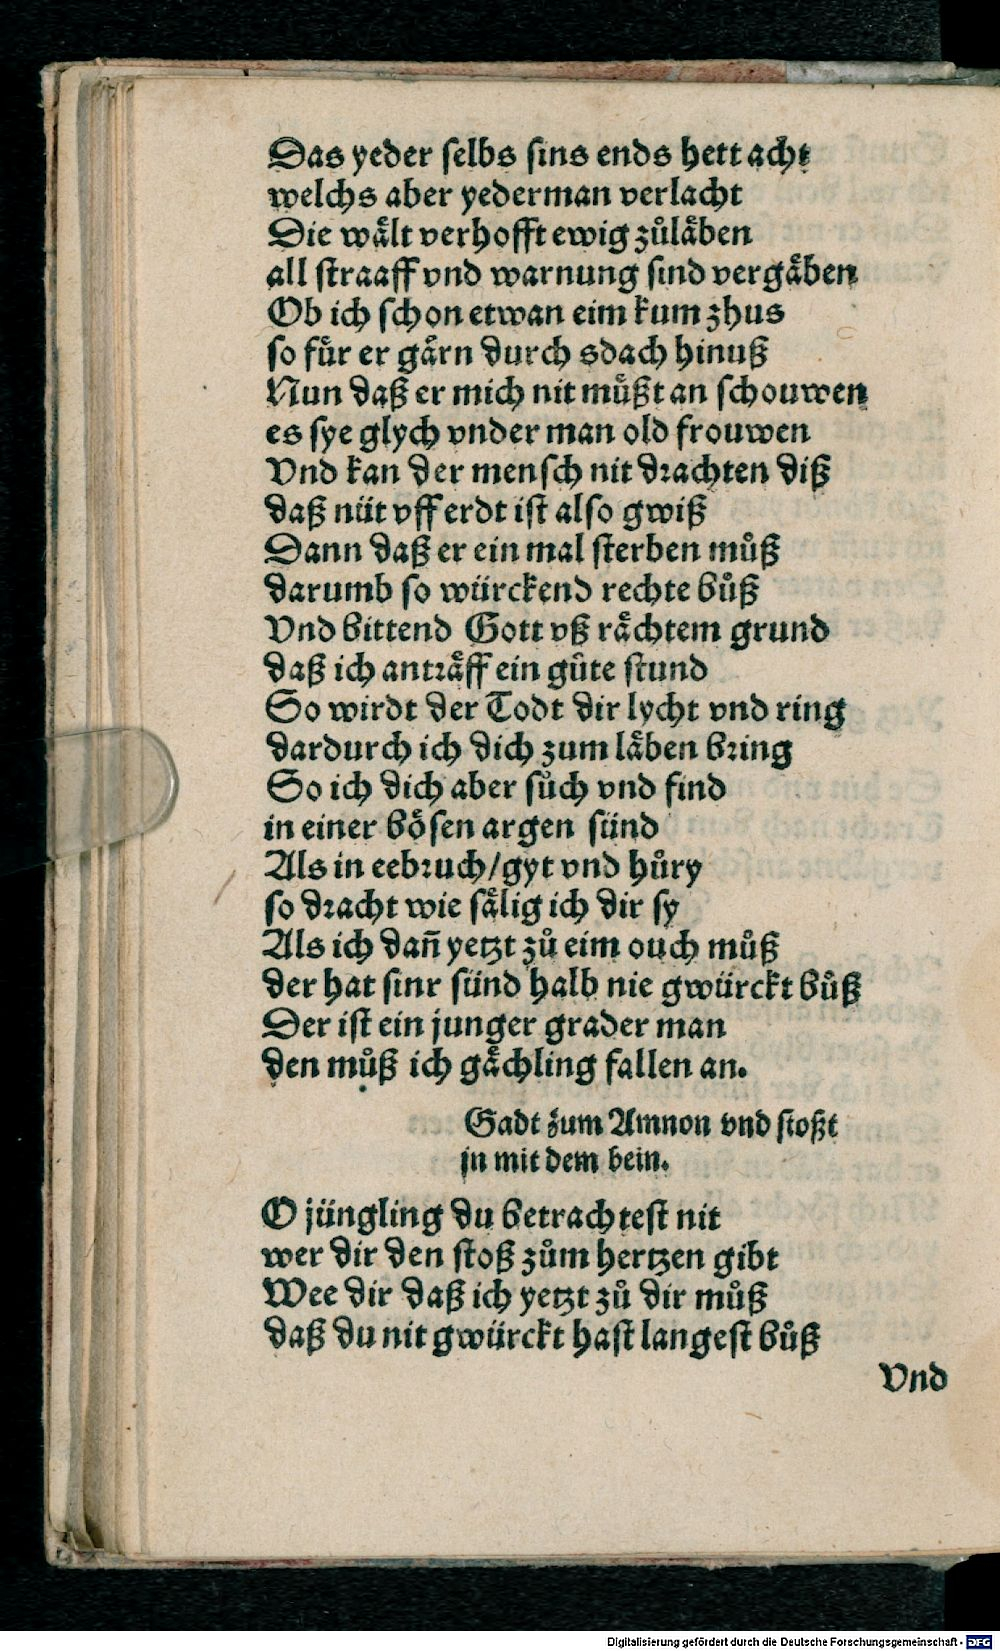 Das yeder selbs sins ends hett acht
welchs aber yederman verlacht
Die waͤlt verhofft ewig zuͦlaͤben
all straaff vnd warnung sind vergaͤben
Ob ich schon etwan eim kum zhus
so fuͤr er gaͤrn durch sdach hinuß
Nun daß er mich nit muͤßt an schouwen
es sye glych vnder man old frouwen
Vnd kan der mensch nit drachten diß
daß nüt vff erdt ist also gwiß
Dann daß er ein mal sterben muͦß
darumb so würckend rechte buͦß
Vnd bittend Gott vß raͤchtem grund
daß ich antraͤff ein guͤte stund
So wirdt der Todt dir lycht vnd ring
dardurch ich dich zum laͤben bring
So ich dich aber suͦch vnd find
in einer boͤsen argen sünd
Als in eebruch/gyt vnd huͦry
so dracht wie saͤlig ich dir sy
Als ich dañ yetzt zuͦ eim ouch muͦß
der hat sinr sünd halb nie gwürckt buͦß
Der ist ein junger grader man
den muͦß ich gaͤchling fallen an.
Gadt zum Amnon vnd stoßt
jn mit dem bein.
O jüngling du betrachtest nit
wer dir den stoß zuͦm hertzen gibt
Wee dir daß ich yetzt zuͦ dir muͦß
daß du nit gwürckt hast langest buͦß
Vnd
Digitalisierung gefördert durch die Deutsche Forschungsgemeinschaft - DFG